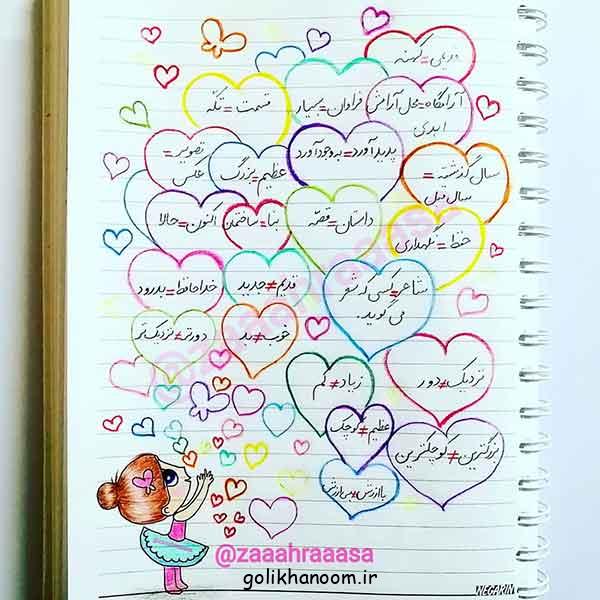 قدیمی = کهنه
آرامگاه = محل آرامش
ابدی
فراوان = بسیار
قسمت = تکّه
تصویر =
عکس
عظیم = بزرگ
پدید آورد = به وجود آورد
سال گذشته =
سال قبل
اکنون = حالا
بنا = ساختمان
داستان = قصّه
حفظ = نگهداری
خداحافظ = بدرود
قدیم ≠ جدید
شاعر = کسی که شعر
می گوید.
دورتر ≠ نزدیک تر
خوب ≠ بد
زیاد ≠ کم
نزدیک ≠ دور
عظیم ≠ کوچک
بزرگترین ≠ کوچکترین
باارزش ≠ بی ارزش
@zaaahraaasa
@zaaahraaasa
golikhanoom.ir
NEGARIN